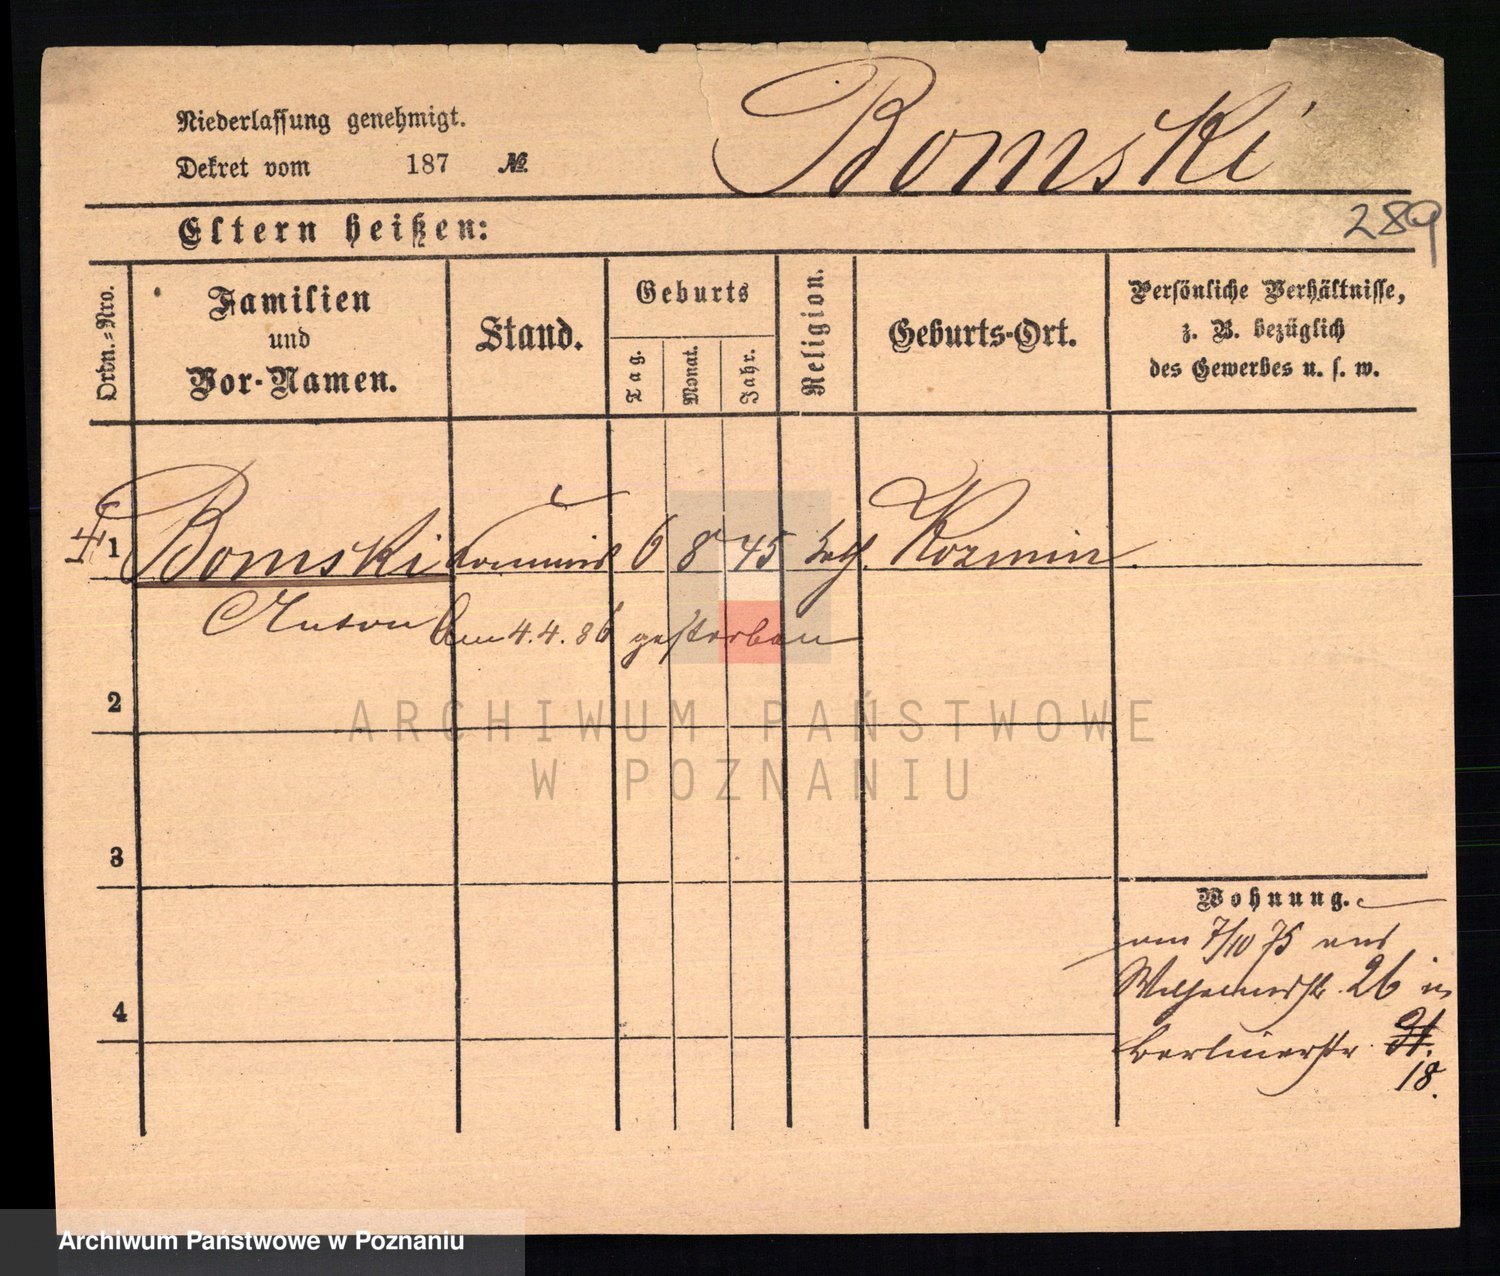 Niederlassung genehmigt.
Dekret vom 187 №
Bomski
Eltern heißen:
289
Ordn.-Nro.
Familien
und
Vor-Namen.
Stand.
Geburts
Tag.
Monat.
Jahr.
Religion.
Geburts-Ort.
Persönliche Verhältnisse,
z. B. bezüglich
des Gewerbes u. s. w.
1 Bomski Commis 6 8 45 kath. Kozmin
Anton Am 4.4.86 gestorben
2
ARCHIWUM PAŃSTWOWE
W POZNANIU
3
Wohnung.
am 7/10 75 aus
Wilhelmstr. 26 in
Berlinerstr
18.
4
Archiwum Państwowe w Poznaniu